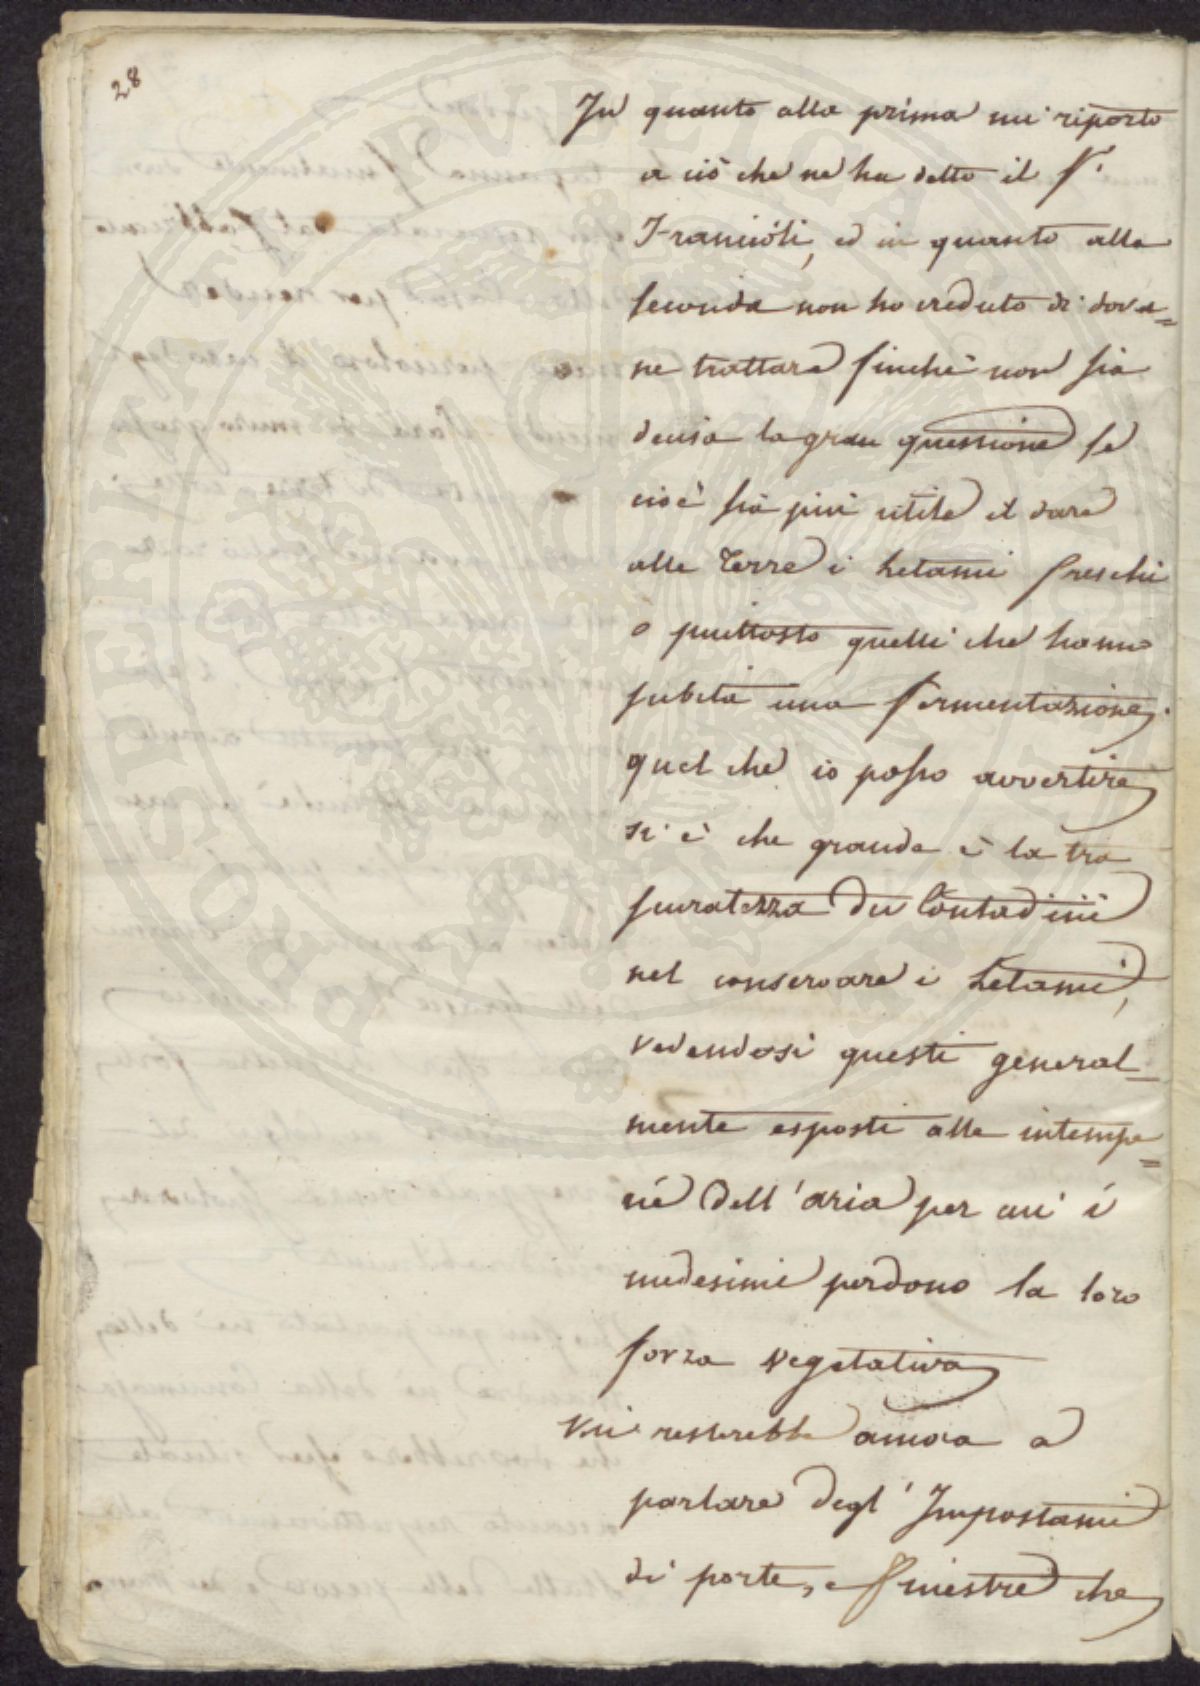 28
In quanto alla prima mi riporto
a ciò che ne ha detto il S.r
Francioli, ed in quanto alla
seconda non ho creduto di dove=
ne trattare finchè non sia
decisa la gran questione se
cioè sia più utile il dare
alle Terre i Letami freschi
o piuttosto quelli che hanno
subita una fermentazione.
quel che io posso avvertire
si è che grande è la tra
scuratezza dei Contadini
nel conservare i Letami,
vedendosi questi general=
mente esposti alle intempe=
rie dell'aria per cui i
medesimi perdono la loro
forza vegetativa
Vi resterebbe ancora a
parlare degl'Impostami
di porte, e finestre che